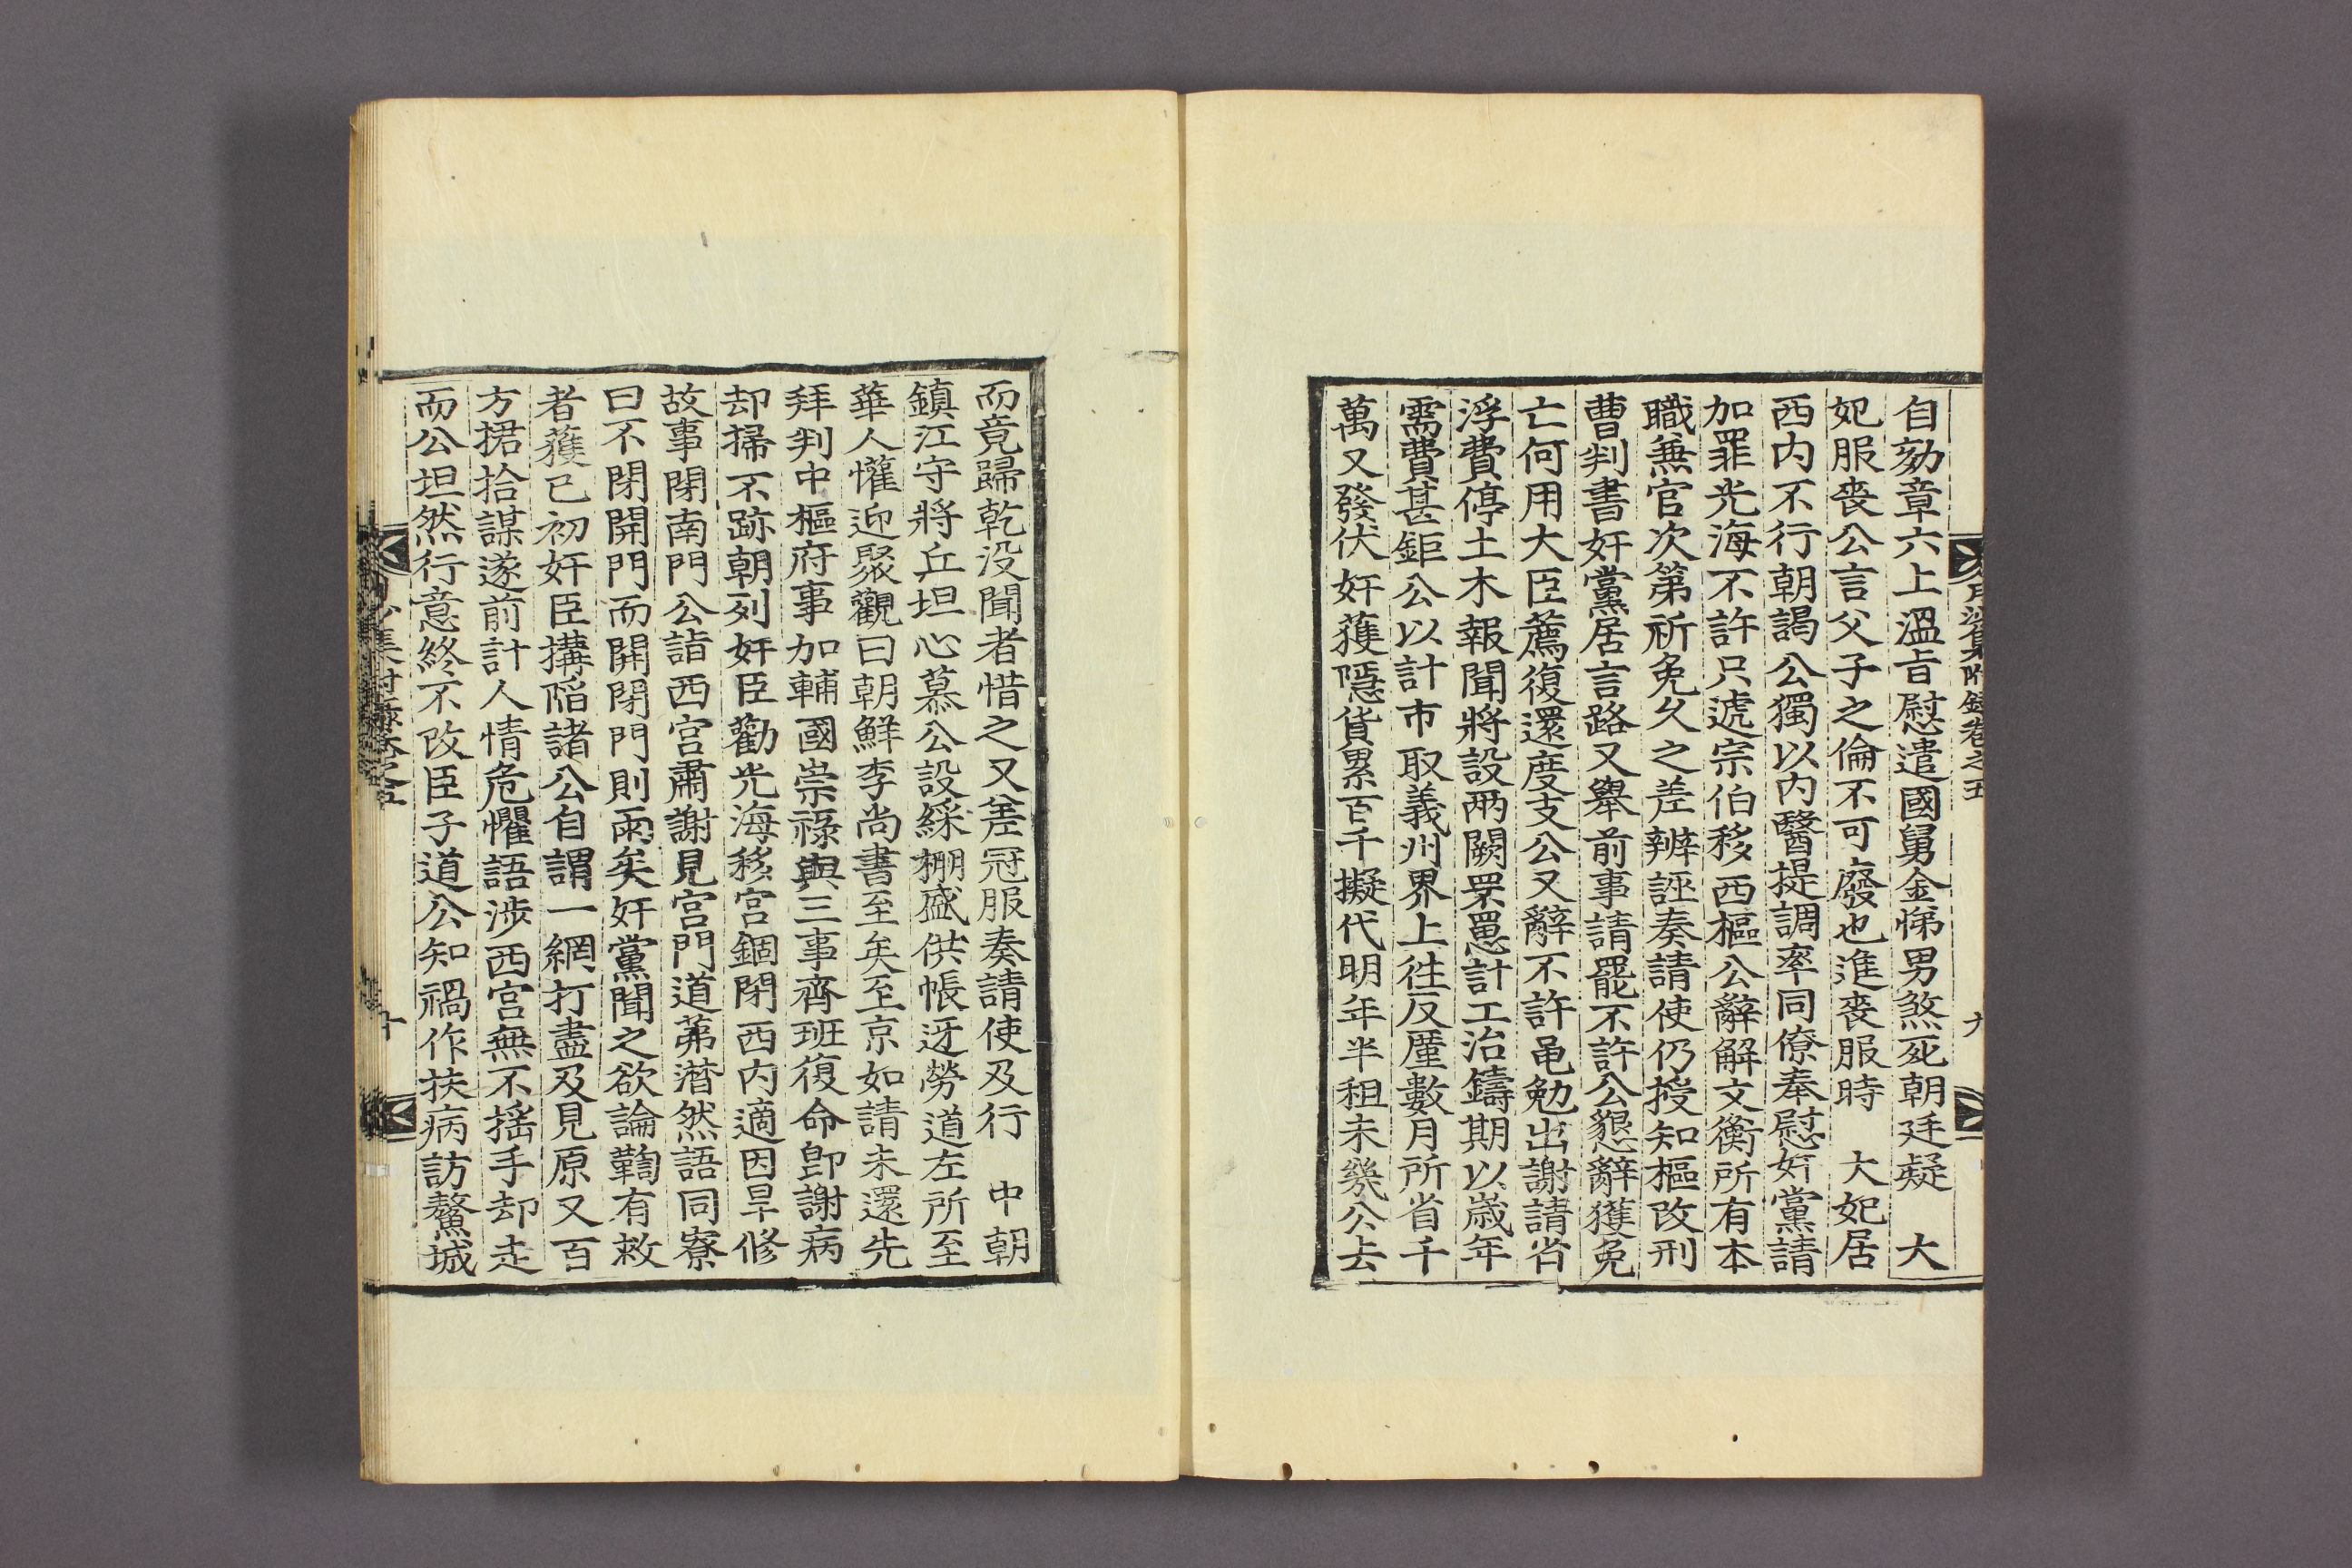 自劾章六上溫旨慰遣國舅金悌男煞死朝廷疑　大
妃服喪公言父子之倫不可廢也進喪服時　大妃居
西内不行朝謁公獨以内醫提調率同僚奉慰奸黨請
加罪光海不許只遞宗伯移西樞公辭解文衡所有本
職兼官次第祈免久之差辨誣奏請使仍授知樞改刑
曹判書奸黨居言路又擧前事請罷不許公懇辭獲免
亡何用大臣薦復還度支公又辭不許黽勉出謝請省
浮費停土木報聞將設兩闕罘罳計工冶鑄期以歲年
需費甚鉅公以計市取義州界上徃反厪數月所省千
萬又發伏奸蒦隱貨累百千擬代明年半租未幾公去
而竟歸乾没聞者惜之又差冠服奏請使及行　中朝
鎮江守將丘坦心慕公設綵棚盛供帳迓勞道左所至
華人懽迎聚觀曰朝鮮李尚書至矣至京如請未還先
拜判中樞府事加輔國崇祿與三事齊班復命卽謝病
却掃不跡朝列奸臣勸光海移宮錮閉西内適因旱修
故事閉南門公詣西宮肅謝見宮門道茀潜然語同寮
曰不閉開門而開閉門則雨矣奸黨聞之欲論鞫有救
者蒦已初奸臣搆陷諸公自謂一網打盡及見原又百
方捃拾謀遂前計人情危懼語涉西宮無不搖手却走
而公坦然行意終不改臣子道公知禍作扶病訪鰲城